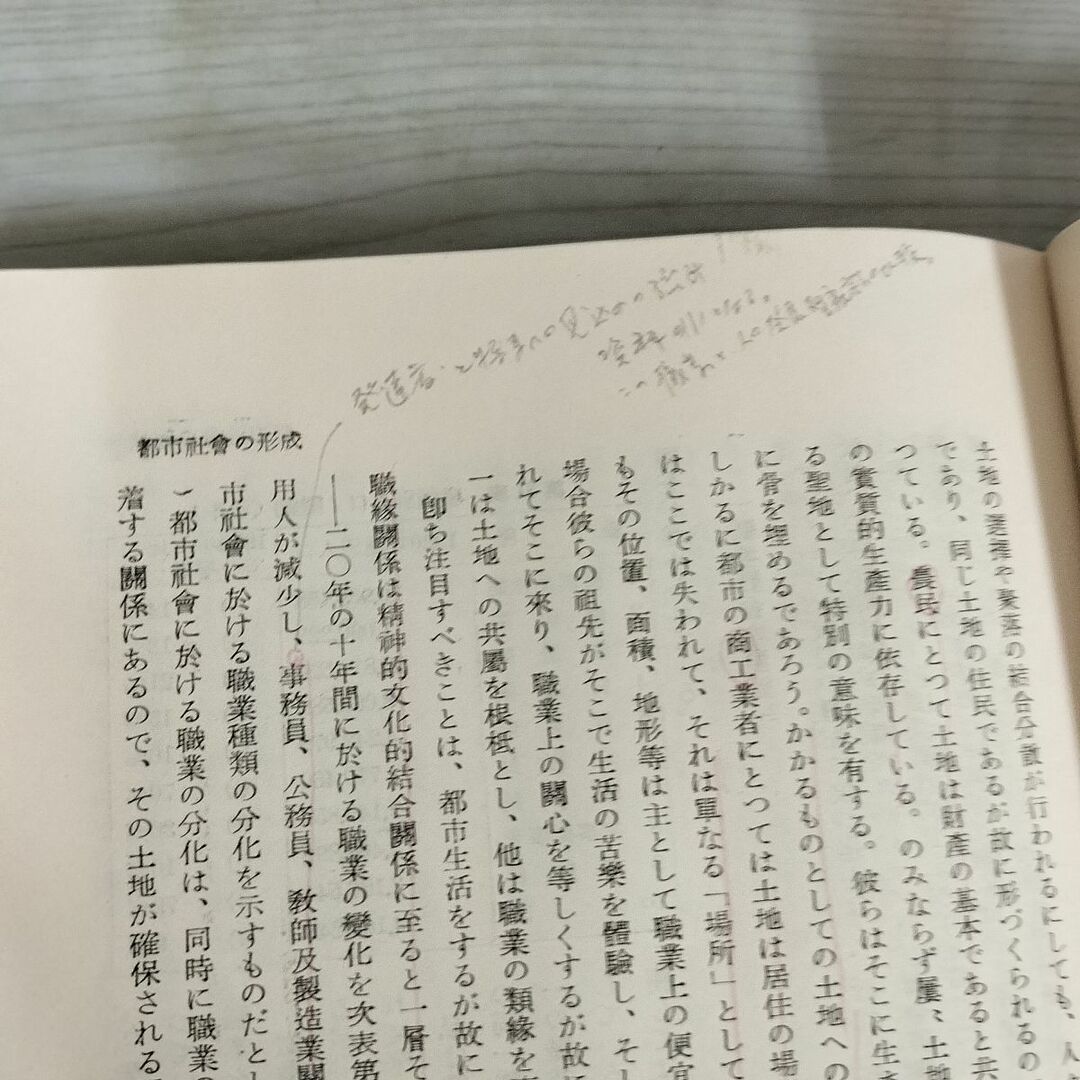 土地の選擇や聚落の結合分散が行われるにしても、人
であり、同じ土地の住民であるが故に形づくられるの
つている。農民にとつて土地は財產の基本であると共
の實質的生產力に依存している。のみならず屢〻土地
る聖地として特別の意味を有する。彼らはそこに生
に骨を埋めるであろう。かかるものとしての土地への
しかるに都市の商工業者にとつては土地は居住の場
はここでは失われて、それは單なる「場所」として
もその位置、面積、地形等は主として職業上の便宜
場合彼らの祖先がそこで生活の苦樂を體驗し、そし
れてそこに來り、職業上の關心を等しくするが故に
一は土地への共屬を根柢とし、他は職業の類緣を
卽ち注目すべきことは、都市生活をするが故に
職緣關係は精神的文化的結合關係に至ると一層そ
──二〇年の十年間に於ける職業の變化を次表第
用人が減少し、事務員、公務員、敎師及製造業關
市社會に於ける職業種類の分化を示すものだとし
都市社會に於ける職業の分化は、同時に職業の
着する關係にあるので、その土地が確保される
都市社會の形成